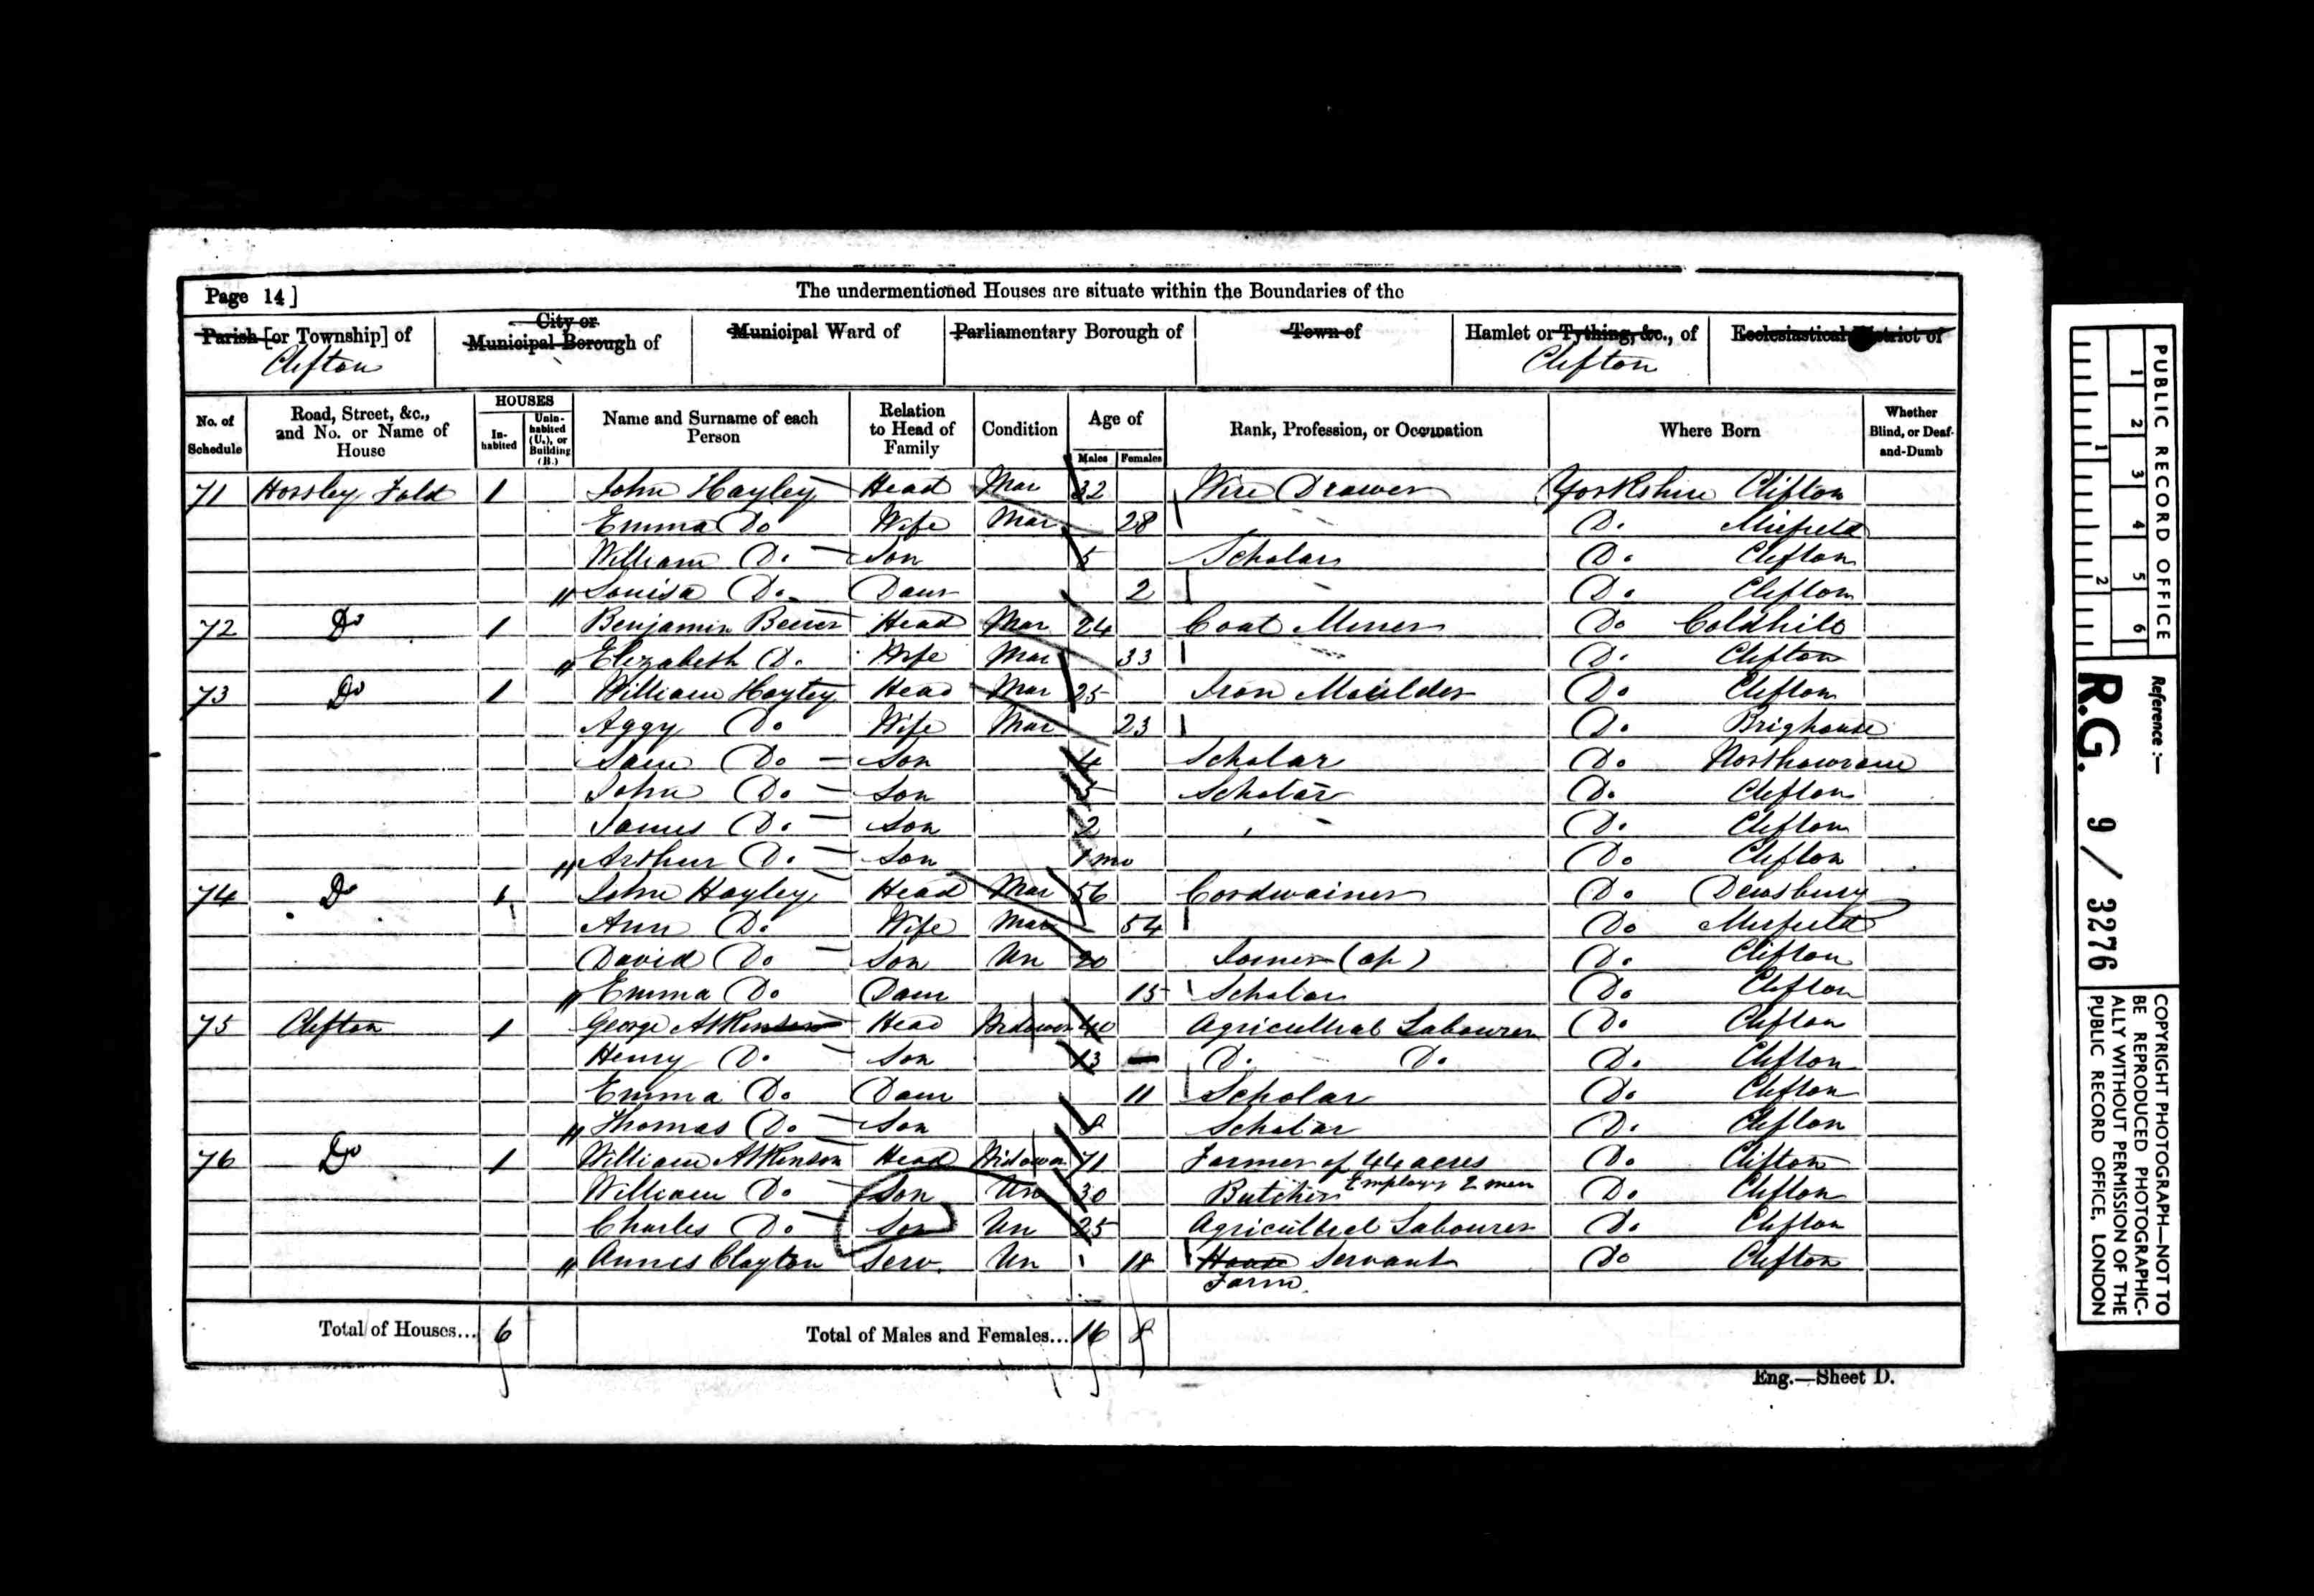 Page 14]
The undermentioned Houses are situate within the Boundaries of the
Parish [or Township] of
Clifton
City or
Municipal Borough of
Municipal Ward of
Parliamentary Borough of
Town of
Hamlet or Tything, &c., of
Clifton
Ecclesiastical District of
No. of Schedule
Road, Street, &c., and No. or Name of House
HOUSES
In-habited
Unin-habited (U.), or Building (B.)
Name and Surname of each Person
Relation to Head of Family
Condition
Age of
Males
Females
Rank, Profession, or Occupation
Where Born
Whether Blind, or Deaf-and-Dumb
71 Horsley Fold 1 John Hayley Head Mar 32 Wire Drawer Yorkshire Clifton
Emma Do Wife Mar 28 Do. Mirfield
William Do. Son 5 Scholar Do. Clifton
Louisa Do. Daur 2 Do. Clifton
72 Do 1 Benjamin Head Mar 24 Coal Miner Do Coldhill
Elizabeth Do. Wife Mar 33 Do. Clifton
73 Do 1 William Hayley Head Mar 25 Iron Moulder Do Clifton
Aggy Do. Wife Mar 23 Do. Brighouse
Sam Do. Son 4 Scholar Do Northowram
John Do. Son Scholar Do. Clifton
James Do. Son 2 Do. Clifton
Arthur Do. Son 1 mo Do Clifton
74 Do 1 John Hayley Head Mar 56 Cordwainer Do. Dewsbury
Ann Do. Wife Mar 54 Do Mirfield
David Do Son Un 20 Joiner (ap) Do. Clifton
Emma Do. Daur 15 Scholar Do. Clifton
75 Clifton 1 George Atkinson Head Widower 40 Agricultral Labourer Do. Clifton
Henry Do. Son 13 Do. Do. Do. Clifton
Emma Do. Daur 11 Scholar Do. Clifton
Thomas Do. Son 8 Scholar Do. Clifton
76 Do 1 William Atkinson Head Widower 71 Farmer of 44 acres Do. Clifton
Employs 2 men
William Do. Son Un 30 Butcher Do. Clifton
Charles Do. Son Un 25 Agricultral Labourer Do. Clifton
Annis Clayton Serv. Un 18 House Servant Do Clifton
Farm
Total of Houses... 6
Total of Males and Females... 16 8
Eng.—Sheet D.
PUBLIC RECORD OFFICE
1 2 3 4 5 6
1 2
Reference :—
R.G. 9 / 3276
COPYRIGHT PHOTOGRAPH—NOT TO
BE REPRODUCED PHOTOGRAPHIC-
ALLY WITHOUT PERMISSION OF THE
PUBLIC RECORD OFFICE, LONDON